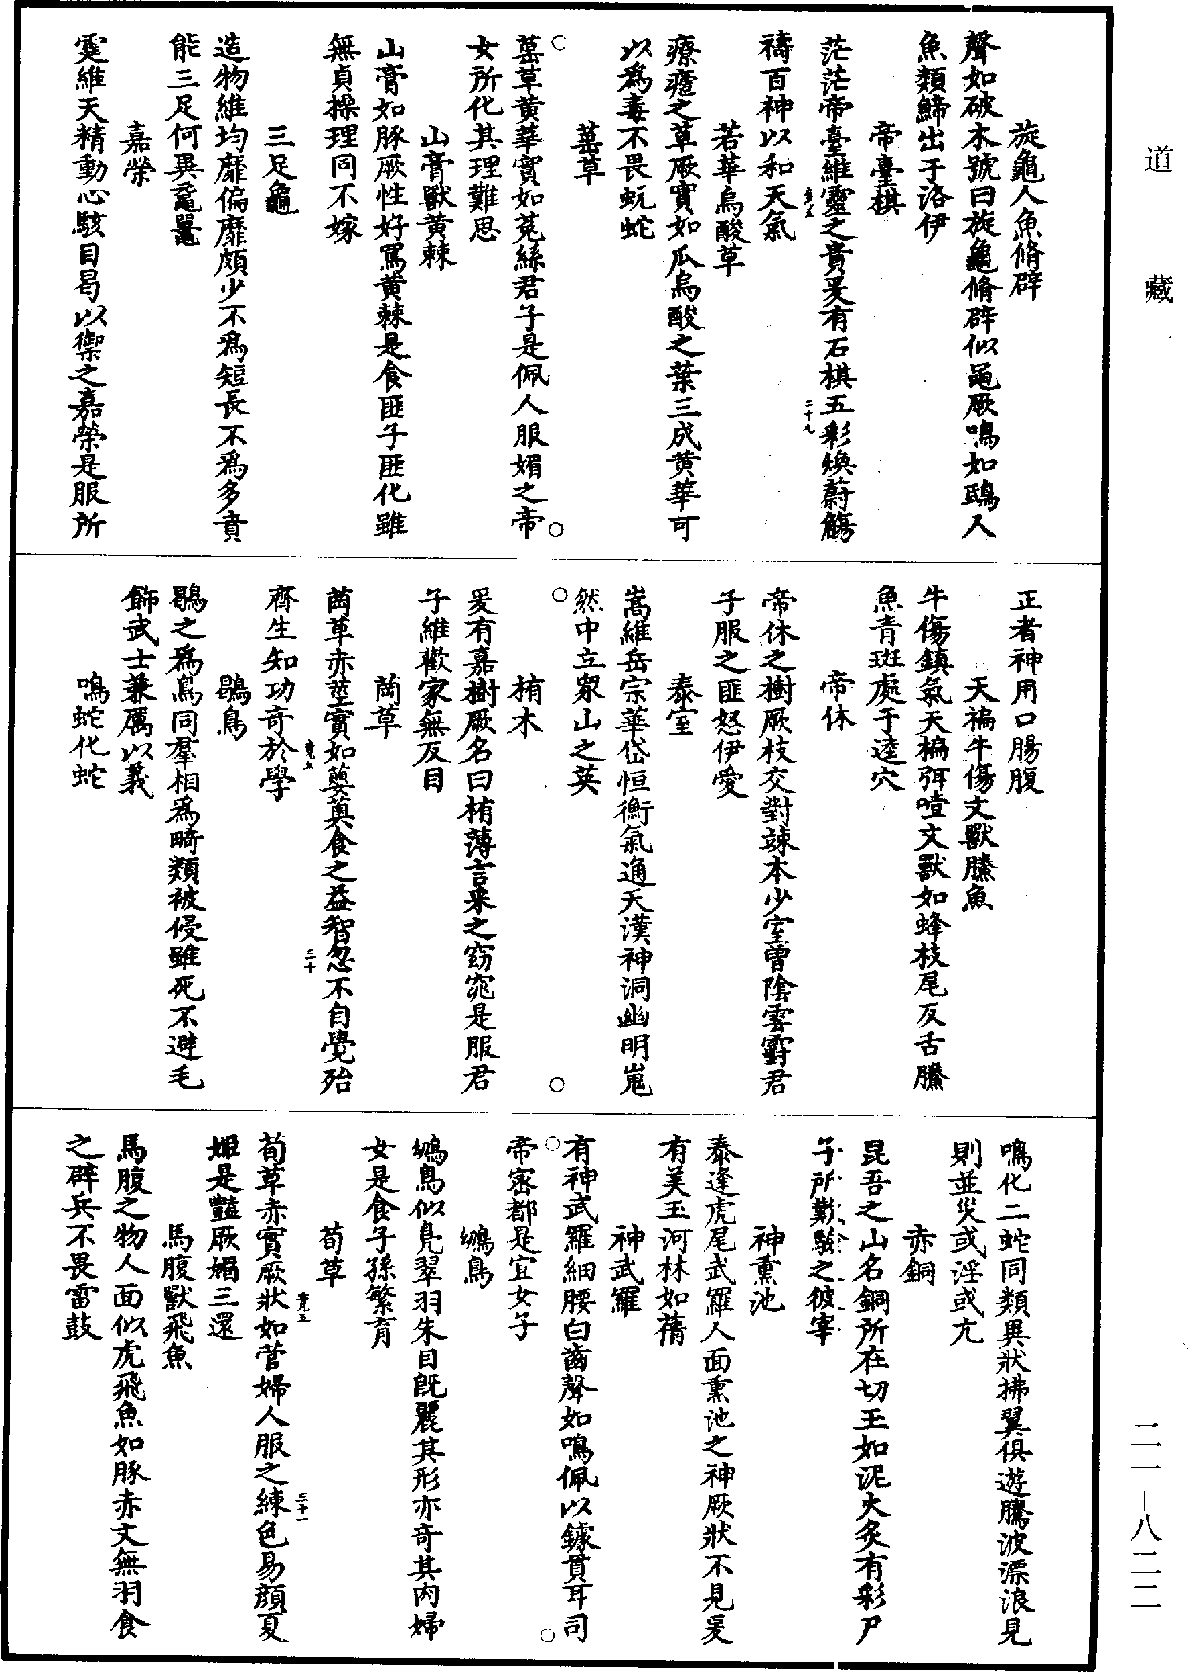 道藏
旋龜人魚脩辟
聲如破木號曰旋龜脩辟似黽厥鳴如鴟人
魚類鯑出于洛伊
帝臺棋
茫茫帝臺維靈之貴爰有石棋五彩煥蔚觴
禱百神以和天氣
若華烏酸草
療瘧之草厥實如瓜烏酸之葉三成黄華可
以爲毒不畏蚖蛇
䔄草
䔄草黄華實如菟絲君子是佩人服媚之帝
女所化其理難思
山膏獸黄棘
山膏如豚厥性好罵黄棘是食匪子匪化雖
無貞操理同不嫁
三足龜
造物維均靡偏靡頗少不爲短長不爲多賁
能三足何異黿鼉
嘉榮
霆維天精動心駭目曷以禦之嘉榮是服所
正者神用口腸腹
天楄牛傷文獸騰魚
牛傷鎮氣天楄弭噎文獸如蜂枝尾反舌騰
魚青斑處于逵穴
帝休
帝休之樹厥枝交對竦本少室曾陰雲霨君
子服之匪怒伊愛
泰室
嵩維岳宗華岱恒衡氣通天漢神洞幽明嵬
然中立衆山之英
栯木
爰有嘉樹厥名曰栯薄言采之窈窕是服君
子維歡家無反目
䓘草
䓘草赤莖實如蘡薁食之益智忽不自覺殆
齊生知功奇於學
鶡鳥
鶡之爲鳥同羣相爲畸類被侵雖死不避毛
飾武士兼厲以義
鳴蛇化蛇
鳴化二蛇同類異狀拂翼俱遊騰波漂浪見
則並災或淫或亢
赤銅
昆吾之山名銅所在切玉如泥火炙有彩尸
子所歎驗之彼宰
神熏池
泰逢虎尾武羅人面熏池之神厥狀不見爰
有美玉河林如蒨
神武羅
有神武羅細腰白齒聲如鳴佩以鐻貫耳司
帝密都是宜女子
鴢鳥
鴢鳥似鳧翠羽朱目既麗其形亦奇其肉婦
女是食子孫繁育
荀草
荀草赤實厥狀如菅婦人服之練色易顏夏
姬是豔厥媚三還
馬腹獸飛魚
馬腹之物人面似虎飛魚如豚赤文無羽食
之辟兵不畏雷鼓
二一—八二二